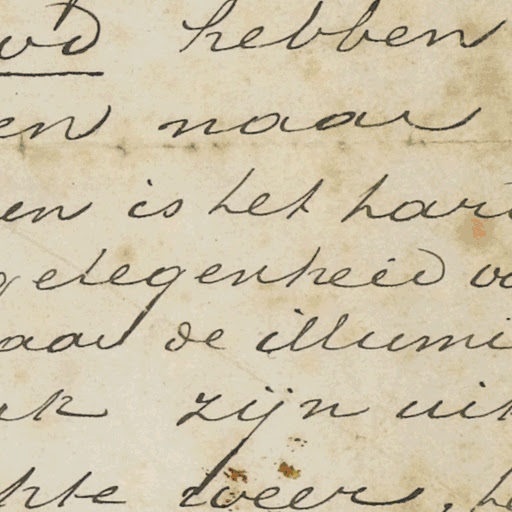 hebben
en naar
en is het har
gelegenheid vo
aar de illumi
uk zijn uit
hte weer, he